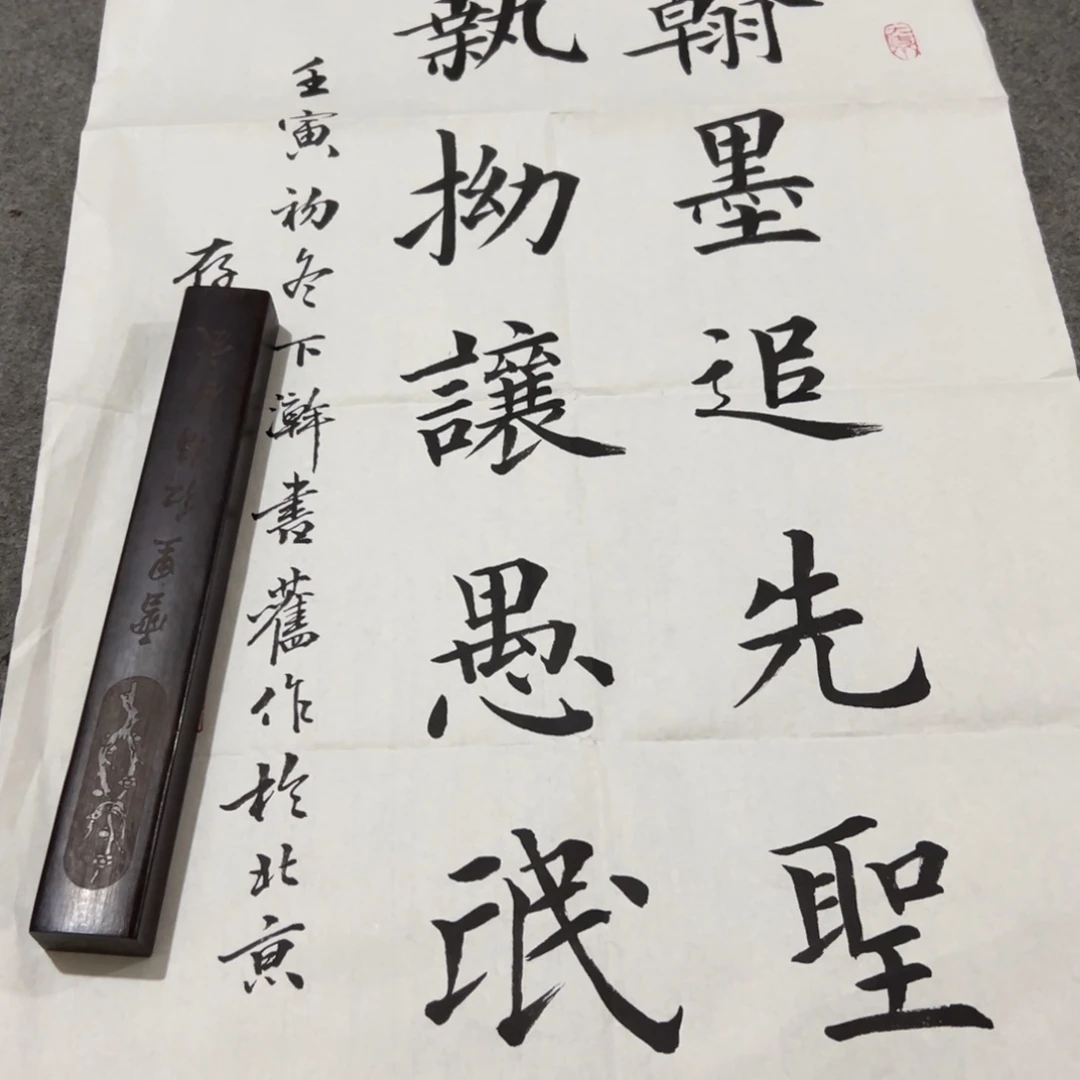 翰墨追先聖
執拗讓愚氓
壬寅初冬下澣書舊作於北京
存